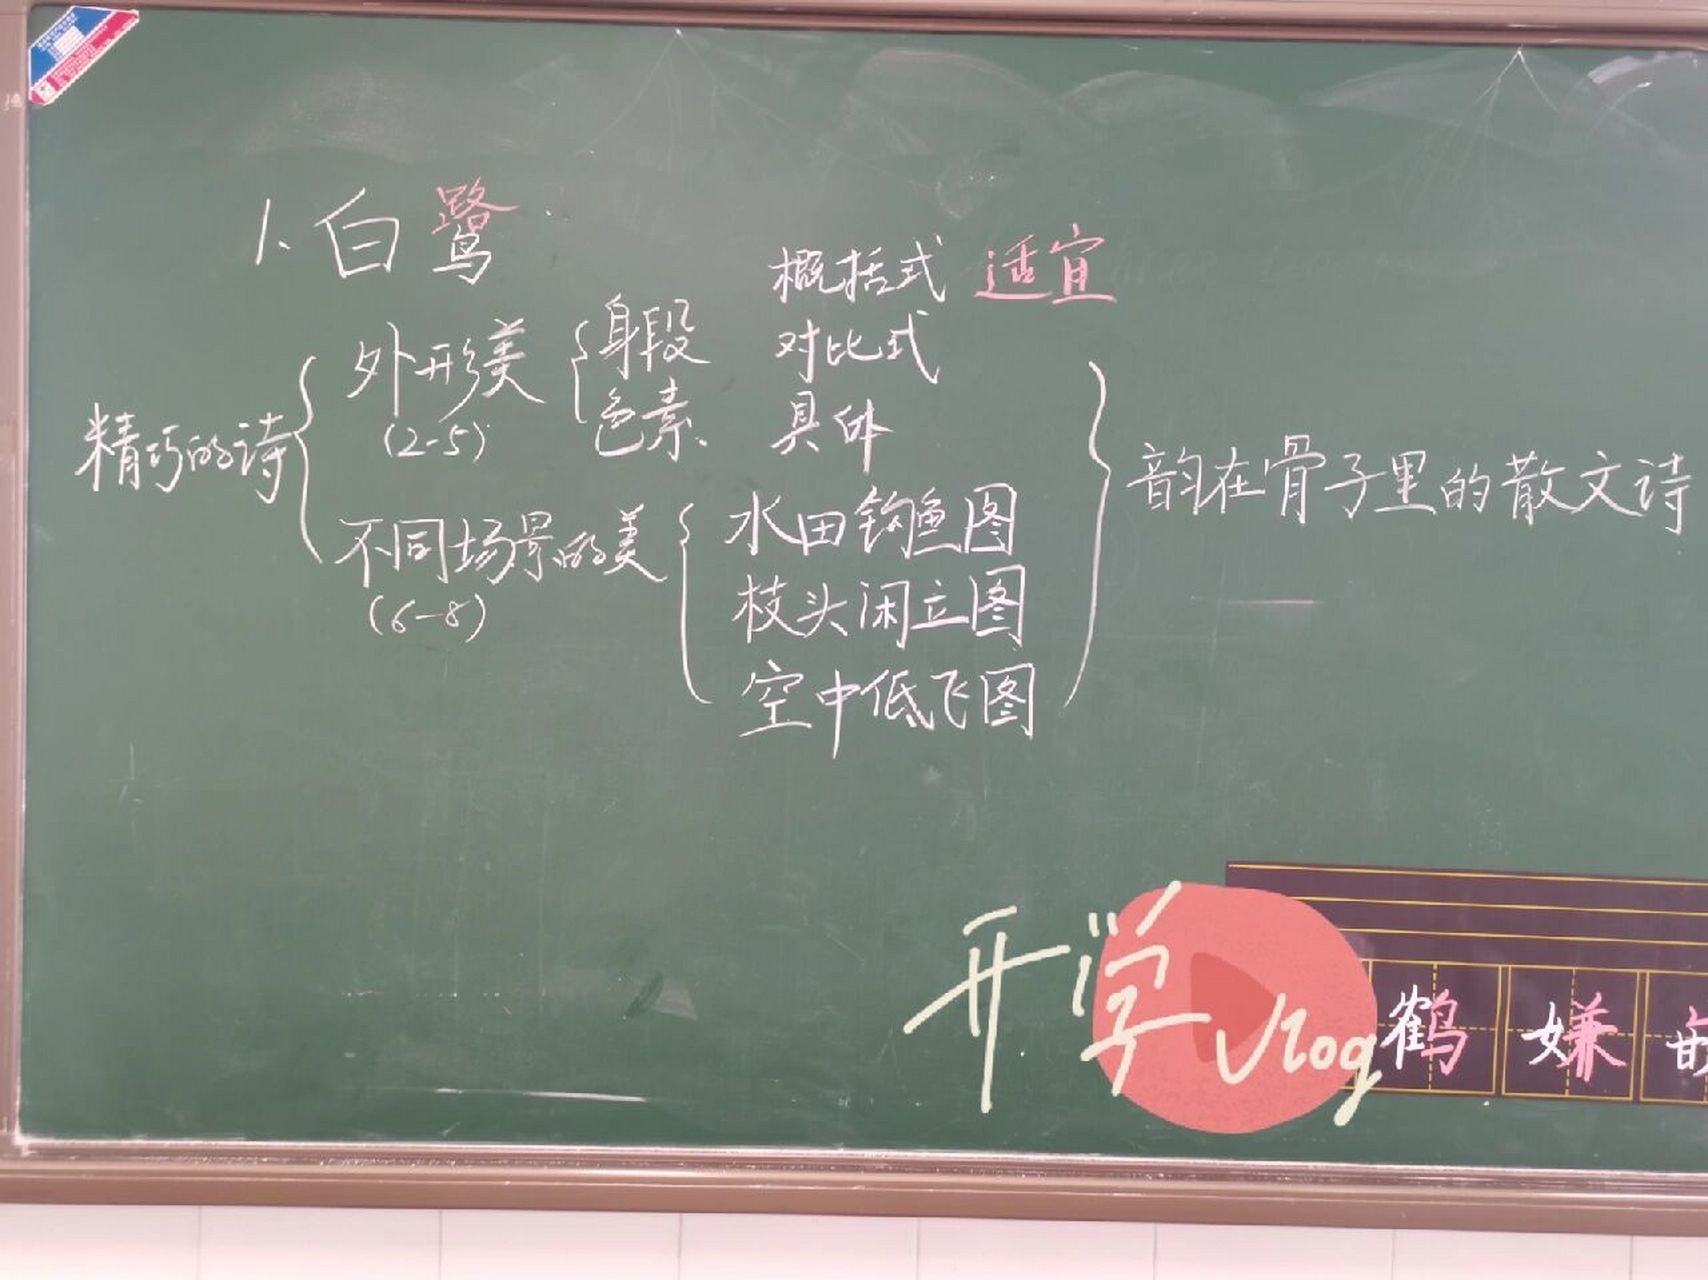 1. 白鹭
概括式 适宜
精巧的诗
外形美
(2-5)
身段
色素
对比式
具体
不同场景的美
(6-8)
水田钓鱼图
枝头闲立图
空中低飞图
韵在骨子里的散文诗
开学Vlog
鹤 嫌